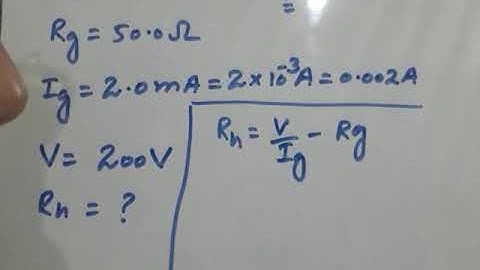 =
Rg = 50.0Ω
Ig = 2.0mA = 2×10⁻³A = 0.002A
V = 200V
Rh = ?
Rh = V/Ig - Rg